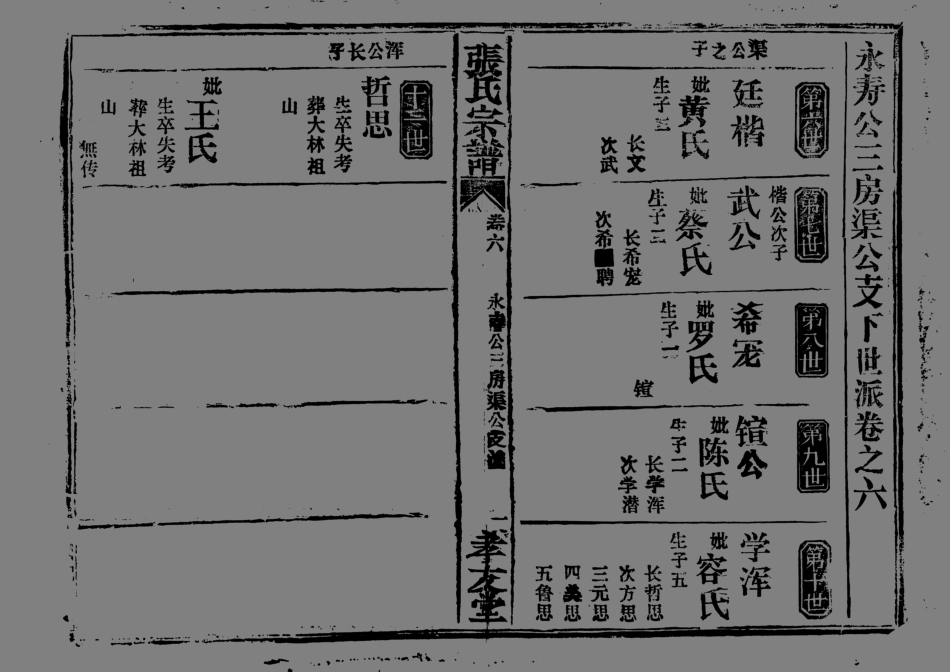 永寿公三房渠公支下世派卷之六
渠公之子
第六世
廷楷
妣黄氏
生子二
长文
次武
第七世
楷公次子
武公
妣蔡氏
生子二
长希宠
次希聘
第八世
希宠
妣罗氏
生子一
镗
第九世
镗公
妣陈氏
生子二
长学浑
次学潜
第十世
学浑
妣容氏
生子五
长哲思
次方思
三元思
四美思
五鲁思
張氏宗譜
卷六
永寿公三房渠公支派
孝友堂
浑公长子
十一世
哲思
生卒失考
葬大林祖
山
妣王氏
生卒失考
葬大林祖
山
無传